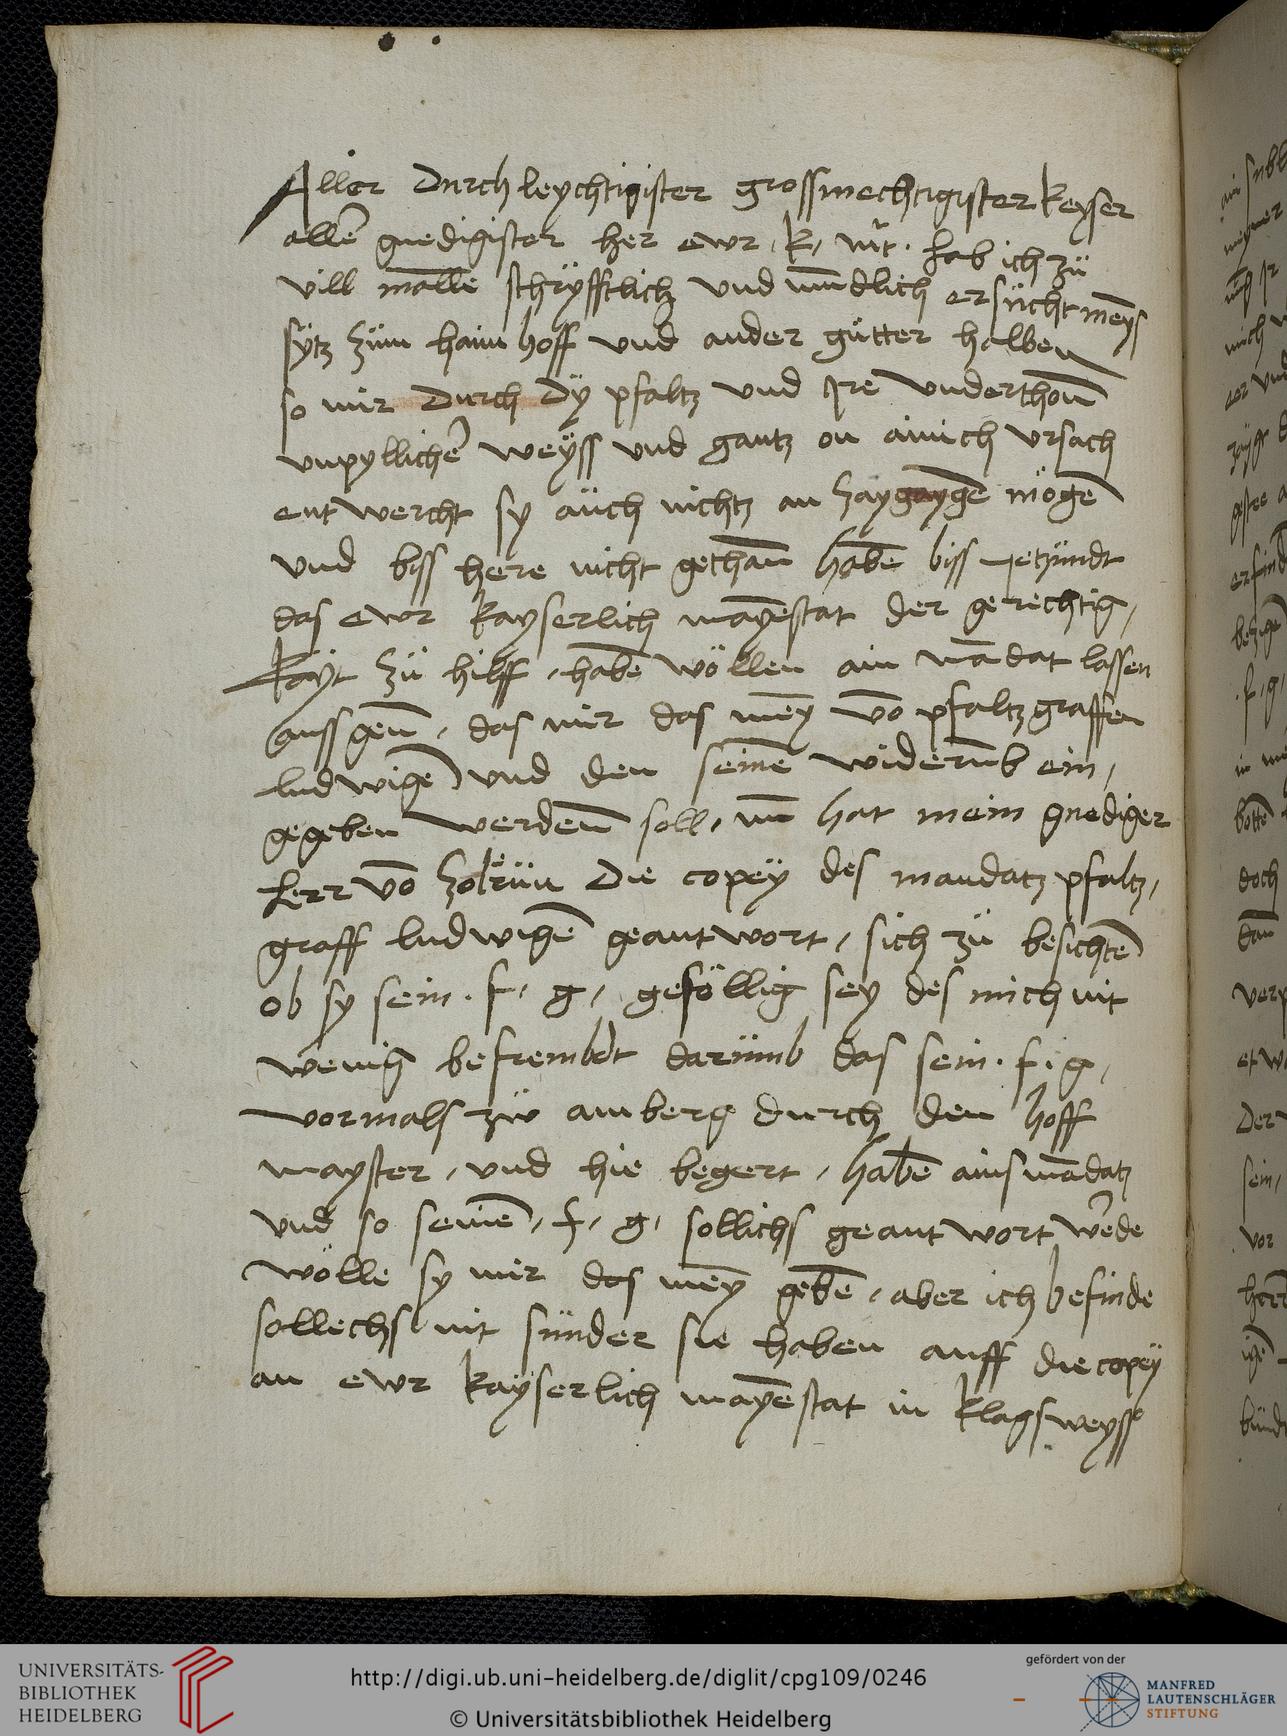 Aller durch leychtigister grossmechtigister keyser
aller gnedigister her ewr k. mt. hab ich zü
vill malle schryfftlich vnd mundlich ersücht meyns
sytz züm haim hoff vnd ander gütter halben
so mir durch dy pfaltz vnd Ire vnderthon
vnpyllicher weyss vnd gantz on ainich vrsach
entwercht sy aüch nichtz an zaygen mögen
vnd biss here nicht gethan haben biss yetzundt
das ewr kayserlich mayestat der gerechtig,
käyt zü hilff, haben wöllen ain mandat lassen
aussgen, das mir das meyn von pfaltzgraffen
ludwigen vnd den seinen widerumb ein,
gegeben werden soll, nun hat mein gnediger
herr von die copey des mandatz pfaltz,
graff ludwigen geantwort, sich zü besichten
ob sy sein. f. g. geföllig sey des mich nit
wenig befrembdt darümb das sein. f. g.
vormals zw amberg durch den hoff
mayster, vnd hie begert, haben ains mandatz
vnd so seinen, f, g, sollichs geantwort werde
wölle sy mir das meyn geben, aber ich befinde
sollechs nit sünder sie haben auff die copey
an ewr kayserlich mayestat in klags weyss
UNIVERSITÄTS-
BIBLIOTHEK
HEIDELBERG
http://digi.ub.uni-heidelberg.de/diglit/cpg109/0246
© Universitätsbibliothek Heidelberg
gefördert von der
MANFRED
LAUTENSCHLÄGER
STIFTUNG